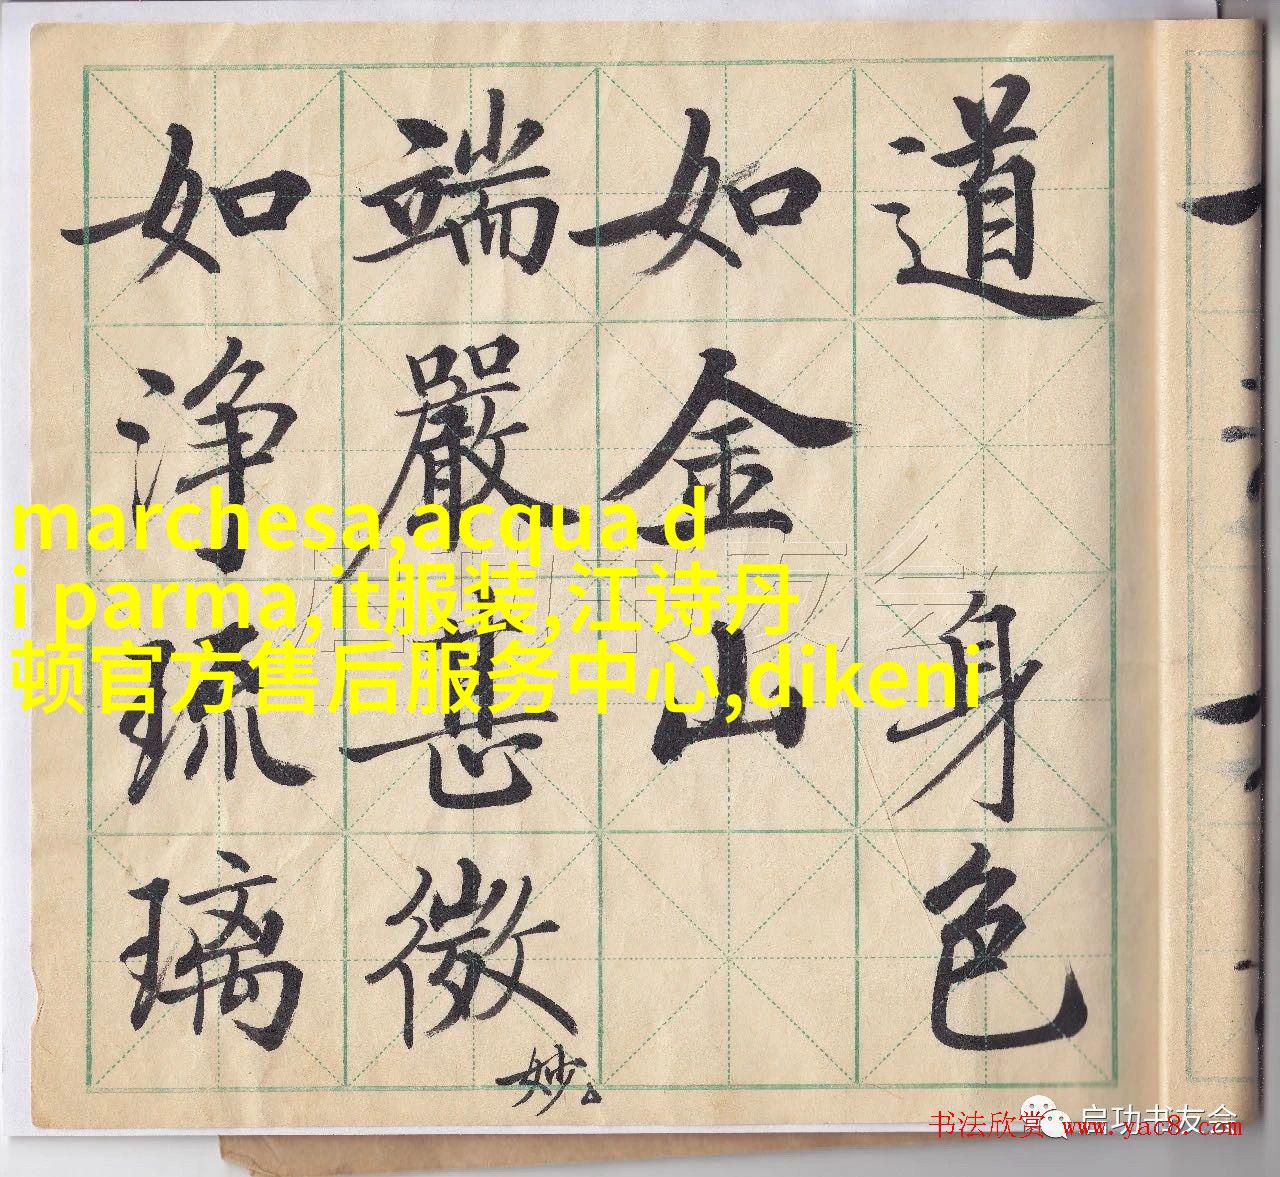 道身色
如金山
端嚴甚微
妙
如淨琉璃
marchesa,acqua d
i parma,it服装,江诗丹
顿官方售后服务中心,dikeni
启功书友会
启功书友会
书法欣赏 www.yac8.com